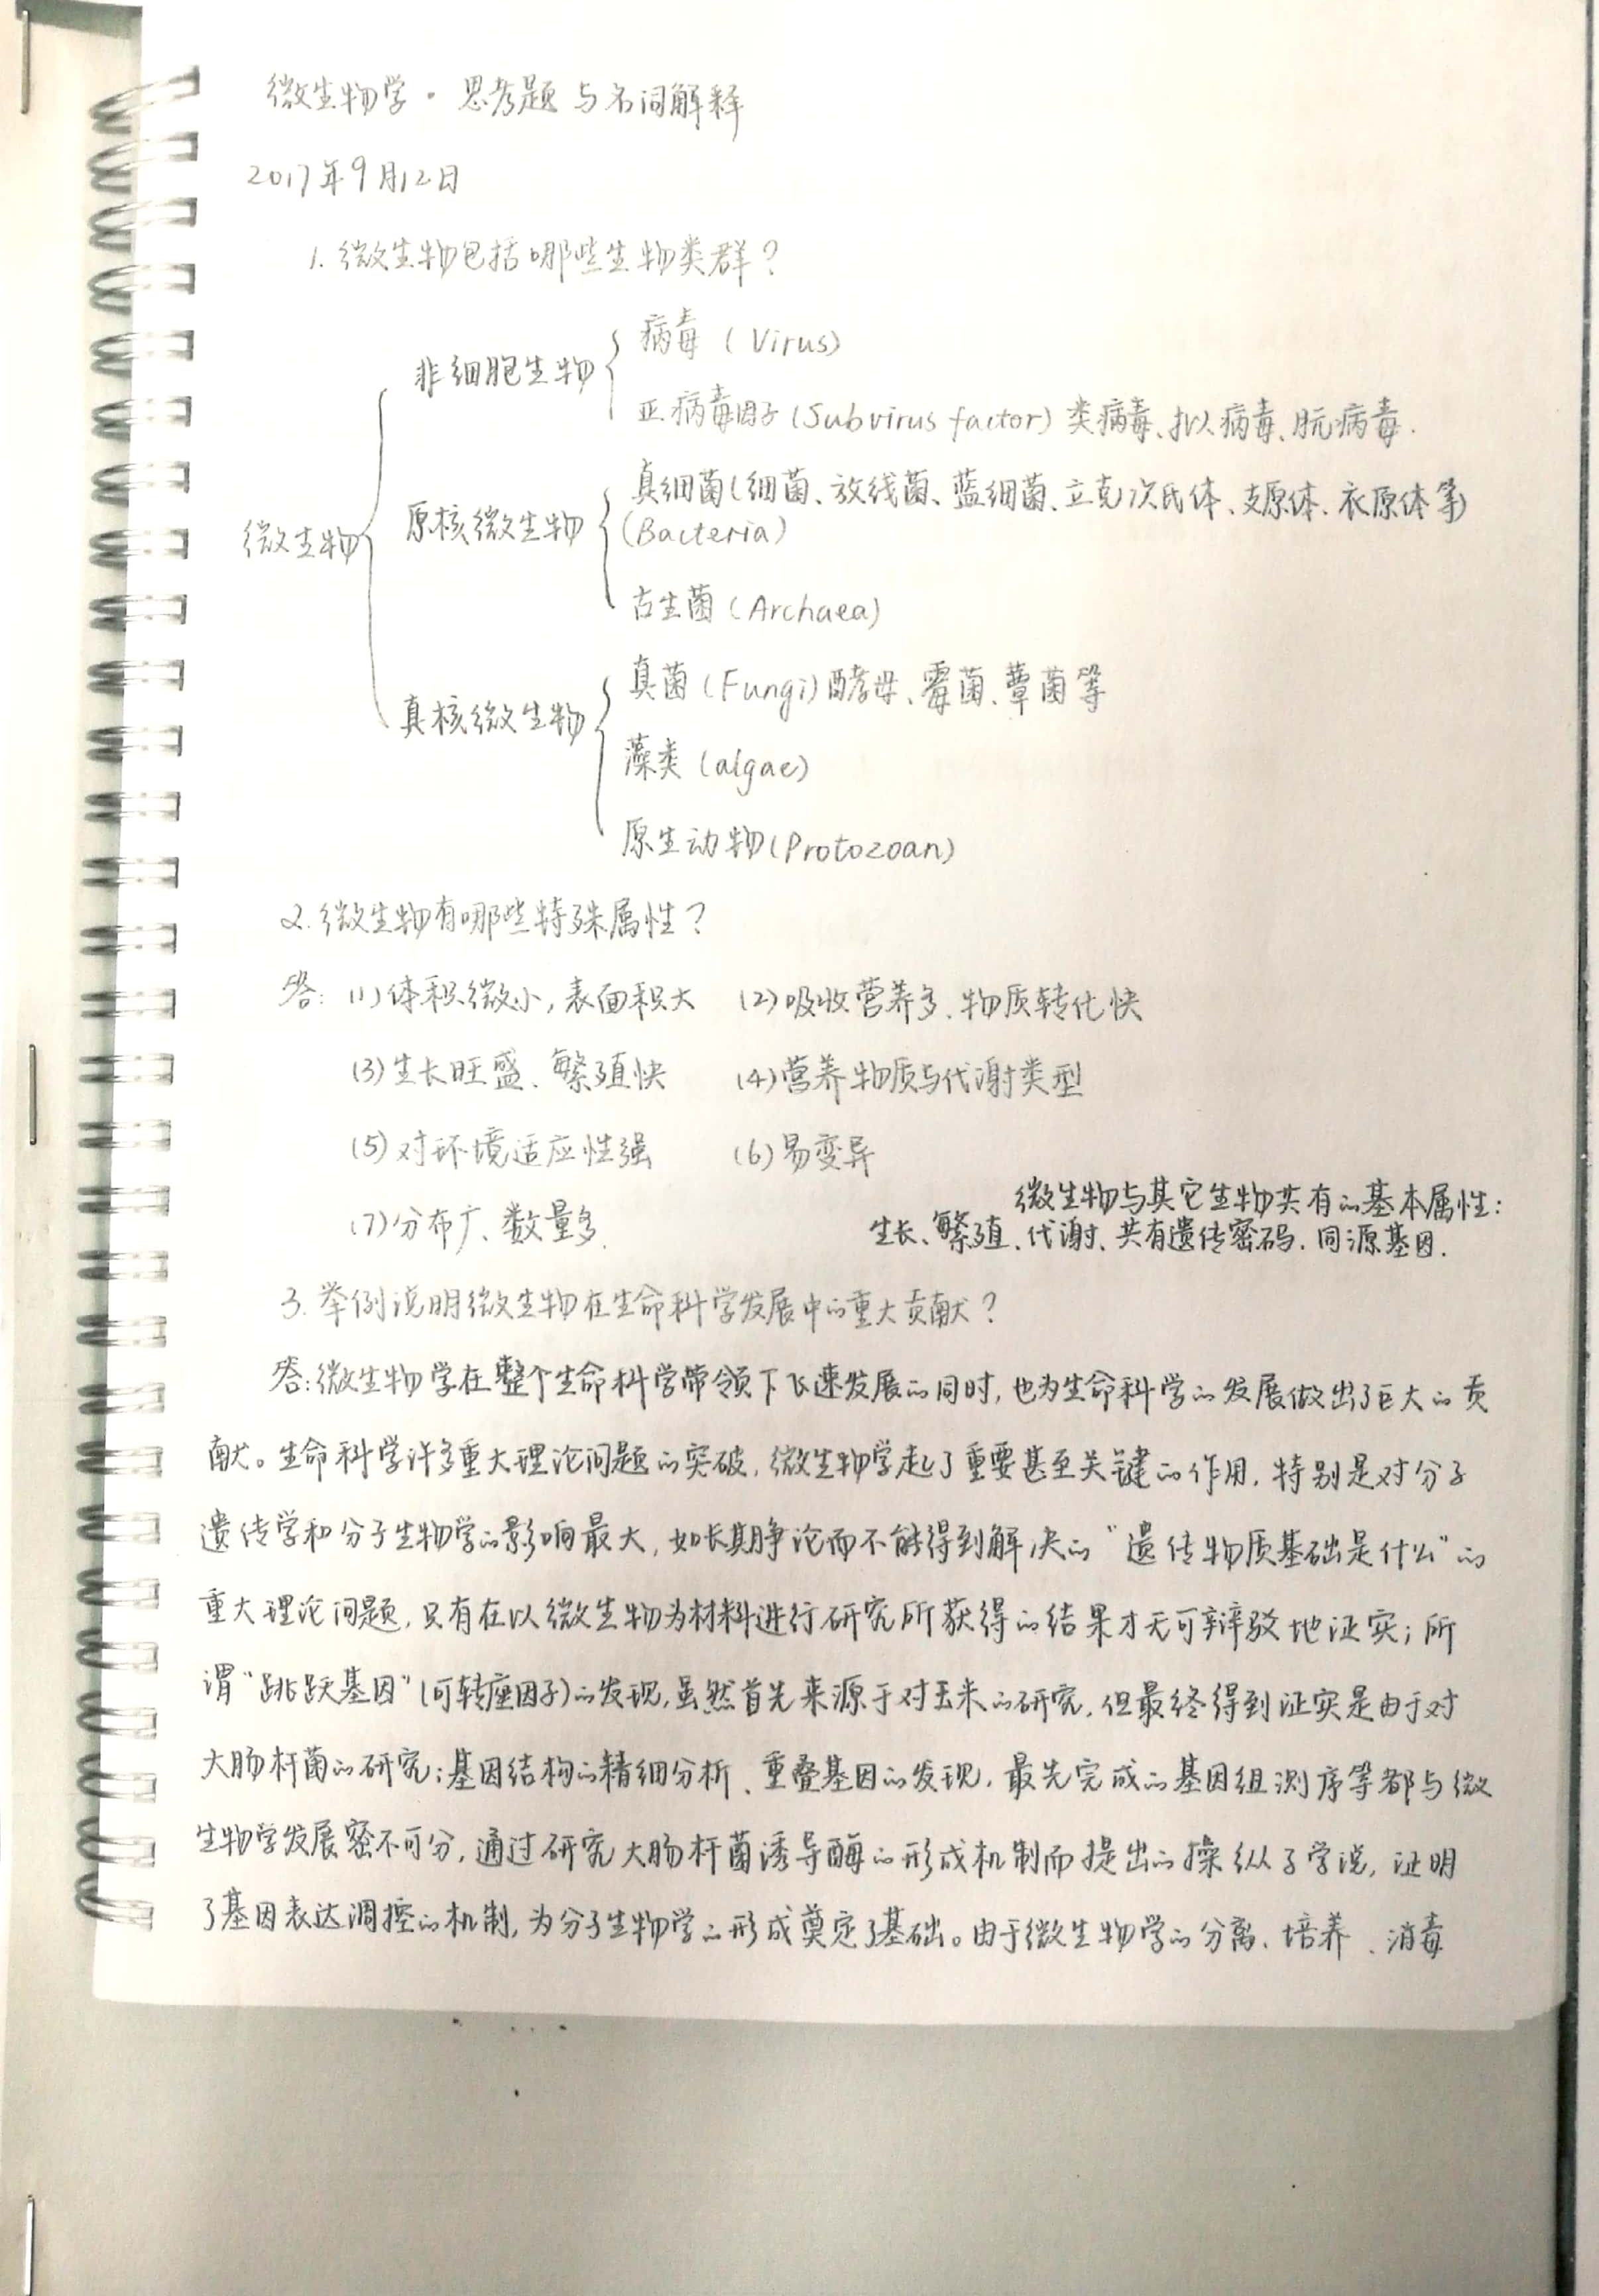 微生物学·思考题与名词解释
2017年9月12日
1. 微生物包括哪些生物类群?
病毒 (Virus)
非细胞生物
亚病毒因子 (Subvirus factor) 类病毒、拟病毒、朊病毒.
真细菌(细菌、放线菌、蓝细菌、立克次氏体、支原体、衣原体等)
微生物 原核微生物 (Bacteria)
古生菌 (Archaea)
真菌 (Fungi) 酵母、霉菌、蕈菌等
真核微生物
藻类 (algae)
原生动物 (Protozoan)
2. 微生物有哪些特殊属性?
答: (1) 体积微小, 表面积大 (2) 吸收营养多、物质转化快
(3) 生长旺盛、繁殖快 (4) 营养物质与代谢类型
(5) 对环境适应性强 (6) 易变异
微生物与其它生物共有的基本属性:
(7) 分布广、数量多. 生长、繁殖、代谢、共有遗传密码、同源基因.
3. 举例说明微生物在生命科学发展中的重大贡献?
答: 微生物学在整个生命科学带领下飞速发展的同时, 也为生命科学的发展做出了巨大的贡
献。生命科学许多重大理论问题的突破, 微生物学起了重要甚至关键的作用, 特别是对分子
遗传学和分子生物学的影响最大, 如长期争论而不能得到解决的“遗传物质基础是什么”的
重大理论问题, 只有在以微生物为材料进行研究所获得的结果才无可辩驳地证实; 所
谓“跳跃基因”(可转座因子)的发现, 虽然首先来源于对玉米的研究, 但最终得到证实是由于对
大肠杆菌的研究; 基因结构的精细分析、重叠基因的发现, 最先完成的基因组测序等都与微
生物学发展密不可分, 通过研究大肠杆菌诱导酶的形成机制而提出的操纵子学说, 证明
了基因表达调控的机制, 为分子生物学的形成奠定了基础。由于微生物学的分离、培养、消毒